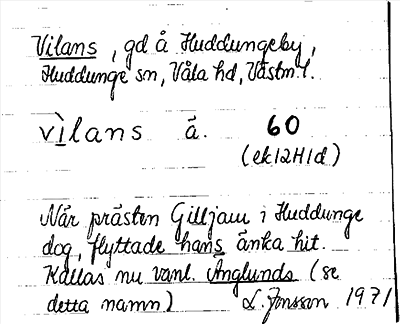 Vilans, gd å Huddungeby,
Huddunge sn, Våla hd, Västm.l.
vìlans å. 60
(ek12H1d)
När prästen Gilljam i Huddunge
dog, flyttade hans änka hit.
Kallas nu vanl. Änglunds (se
detta namn) L. Jonsson 1971